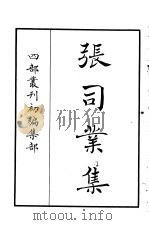 張司業集
四部叢刊初編集部
www.toopoo.com